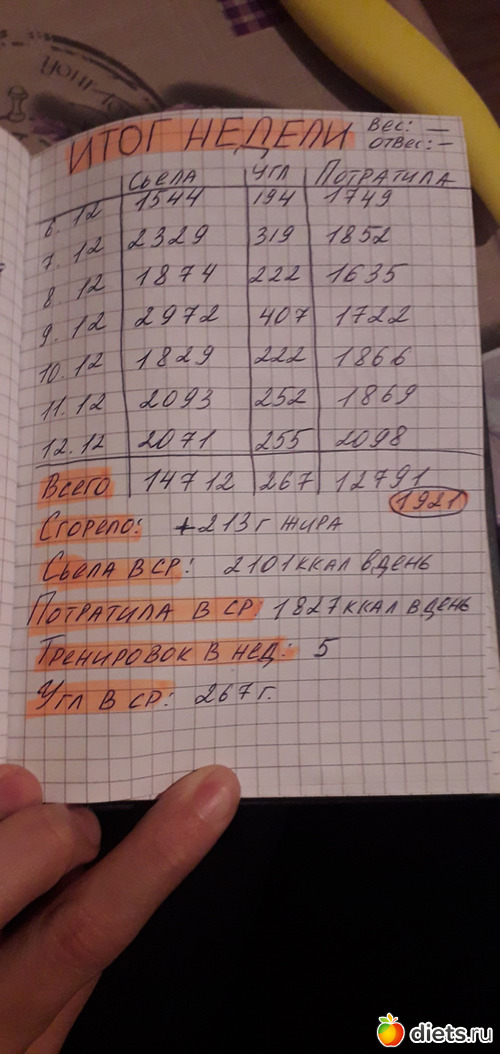 ИТОГ НЕДЕЛИ
ВЕС: —
ОТВЕС: –
СЬЕЛА УГЛ ПОТРАТИЛА
6.12 1544 194 1749
7.12 2329 319 1852
8.12 1874 222 1635
9.12 2972 407 1722
10.12 1829 222 1866
11.12 2093 252 1869
12.12 2071 255 2098
ВСЕГО 14712 267 12791
1921
СГОРЕЛО: +213 г ЖИРА
СЬЕЛА В СР: 2101 ККАЛ В ДЕНЬ
ПОТРАТИЛА В СР: 1827 ККАЛ В ДЕНЬ
ТРЕНИРОВОК В НЕД: 5
УГЛ В СР: 267 г.
diets.ru